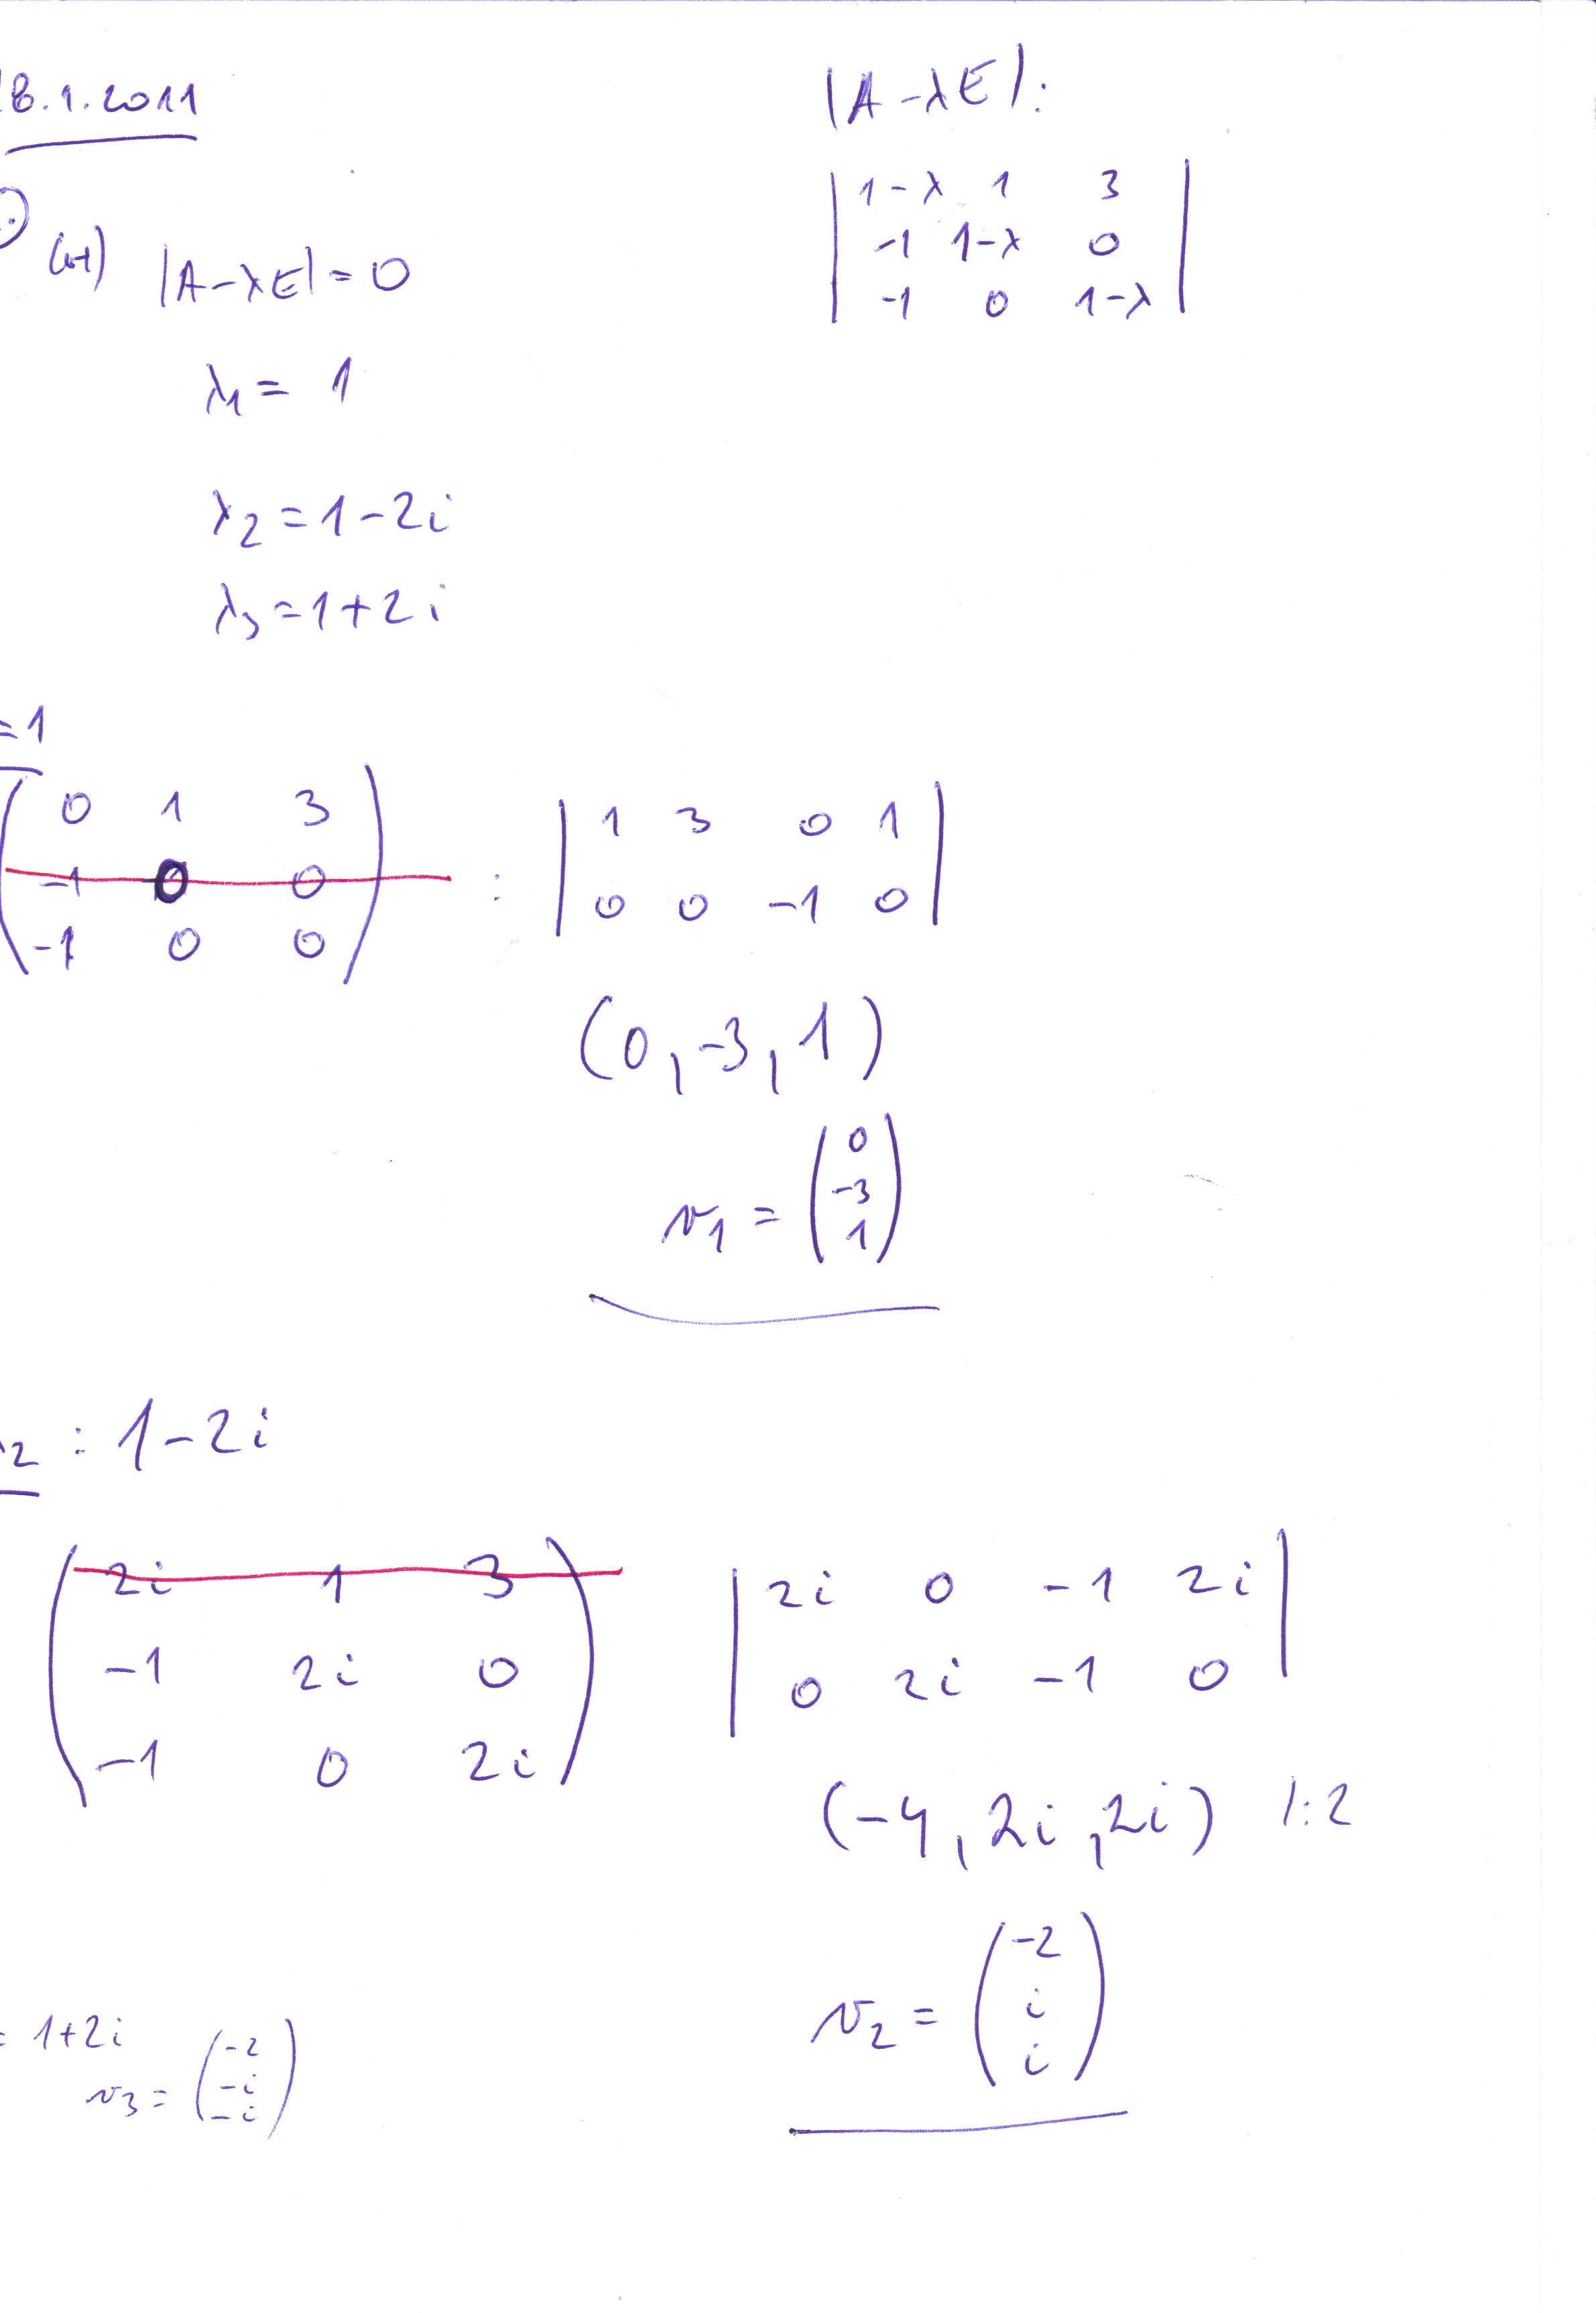 8.1.2011
|A-λE|:
| 1-λ 1 3 |
| -1 1-λ 0 |
| -1 0 1-λ |
|A-λE|=0
λ1 = 1
λ2 = 1-2i
λ3 = 1+2i
=1
( 0 1 3 )
( -1 0 0 ) :
( -1 0 0 )
| 1 3 0 1 |
| 0 0 -1 0 |
(0, -3, 1)
v1 = ( 0
-3
1 )
2 : 1-2i
( 2i 1 3 )
( -1 2i 0 )
( -1 0 2i )
| 2i 0 -1 2i |
| 0 2i -1 0 |
(-4, 2i, 2i) /:2
v2 = ( -2
i
i )
= 1+2i
v3 = ( -2
-i
-i )